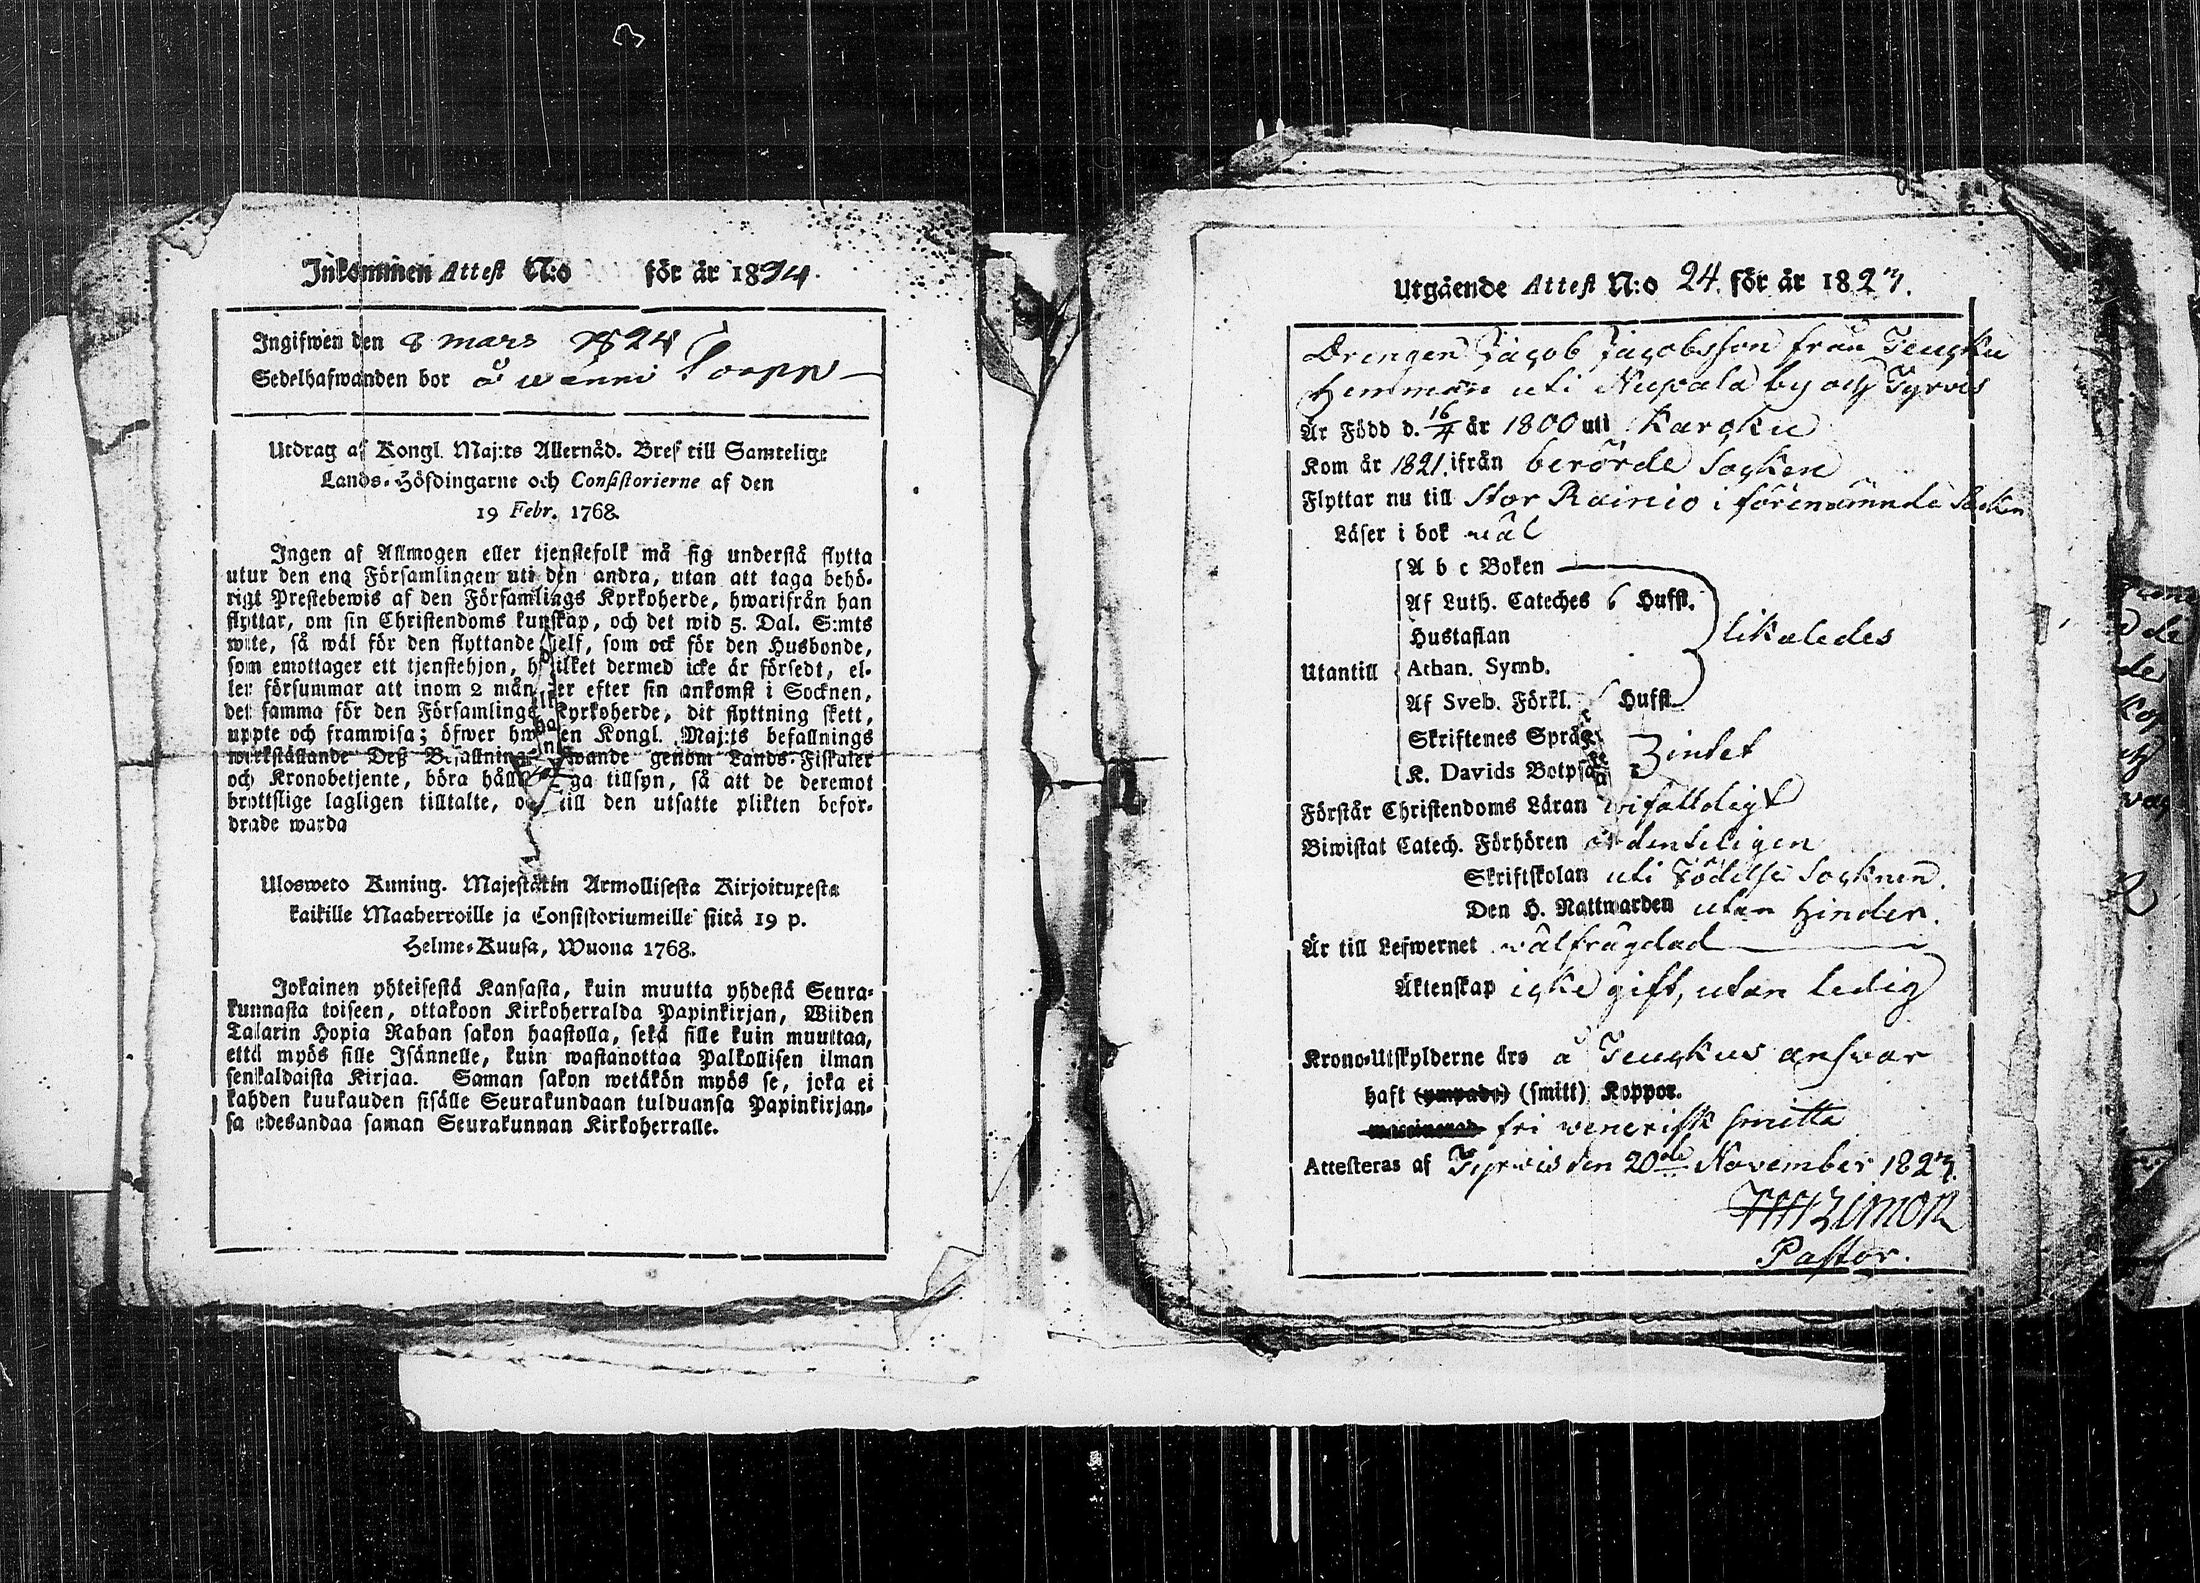 Inkommen Attest N:o för år 1824.
Ingifwen den 8 mars 1824
Sedelhafwanden bor å wänni Torpp
Utdrag af Kongl. Maj:ts Allernåd. Bref till Samtelige
Lands-Höfdingarne och Consistorierne af den
19 Febr. 1768.
Ingen af Allmogen eller tjenstefolk må sig understå flytta
utur den ena Församlingen uti den andra, utan att taga behö-
rigt Prestebewis af den Församlings Kyrkoherde, hwarifrån han
flyttar, om sin Christendoms kunskap, och det wid 5. Dal. S:mts
wite, så wäl för den flyttande sielf, som ock för den Husbonde,
som emottager ett tjenstehjon, hwilket dermed icke är försedt, el-
ler försummar att inom 2 mån er efter sin ankomst i Socknen,
det samma för den Församlings Kyrkoherde, dit flyttning skett,
uppte och framwisa; öfwer hw en Kongl. Maj:ts befallnings
werkställande Deß Befallnin wande genom Lands-Fiskaler
och Kronobetjente, böra håll ga tillsyn, så att de deremot
brottslige lagligen tilltalte, och till den utsatte plikten befor-
drade warda
Ulosweto Kuning. Majestätin Armollisesta Kirjoituxesta
kaikille Maaherroille ja Consistoriumeille siitä 19 p.
Helme-Kuusa, Wuona 1768.
Jokainen yhteisestä Kansasta, kuin muutta yhdestä Seura-
kunnasta toiseen, ottakoon Kirkoherralda Papinkirjan, Wiiden
Talarin Hopia Rahan sakon haastolla, sekä sille kuin muuttaa,
että myös sille Isännelle, kuin wastanottaa Palkollisen ilman
senkaldaista Kirjaa. Saman sakon wetäkön myös se, joka ei
kahden kuukauden sisälle Seurakundaan tulduansa Papinkirjan-
sa edesandaa saman Seurakunnan Kirkoherralle.
Utgående Attest N:o 24. för år 1823.
Drengen Jacob Jacobsson från Teucku
Hemman uti Nupala by och Tyrvis
Är Född d. 16/4 år 1800 uti Karcku
Kom år 1821. ifrån berörde Socken
Flyttar nu till Stor Rainio i förenämnde Socken
Läser i bok wäl
A b c Boken
Af Luth. Cateches 6 Hufst.
Hustaflan likaledes
Utantill Athan. Symb.
Af Sveb. Förkl. Hufst.
Skriftenes Språk
K. Davids Botpsa intet
Förstår Christendoms Läran enfalldigt
Biwistat Catech. Förhören ordenteligen
Skriftskolan uti Födelse Socknen.
Den H. Nattwarden utan hinder.
Är till Lefwernet wälfrägdad
Äktenskap icke gift, utan ledig
Krono-Utskylderne äro å Teuckus ansvar
haft (ympade) (smitt) Koppor.
fri venerisk smitta
Attesteras af Tyrwis den 20de November 1823.
Pastor.